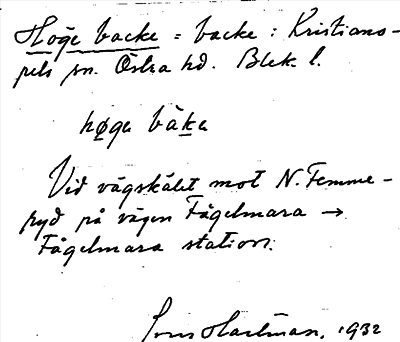 Höge backe = backe : Kristiano-
pels sn. Östra hd. Blek l.
høga bàka
Vid vägskälet mot N. Femme-
ryd på vägen Fågelmara →
Fågelmara station.
Hartman, 1932